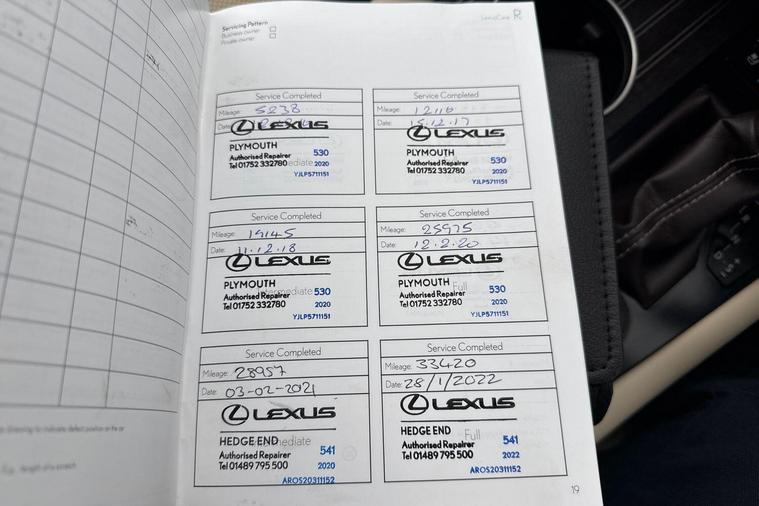 LexusCare R
Servicing Pattern
Business owner
Private owner
Service Completed
Mileage: 5238
Date:
LEXUS
PLYMOUTH
Authorised Repairer 530
Tel 01752 332780 ediate 2020
YJLP5711151
Service Completed
Mileage: 12116
Date: 15.12.17
LEXUS
PLYMOUTH
Authorised Repairer 530
Tel 01752 332780 2020
YJLP5711151
Service Completed
Mileage: 19145
Date: 11.12.18
LEXUS
PLYMOUTH
Authorised Repairer 530
Tel 01752 332780 2020
YJLP5711151
Service Completed
Mileage: 25975
Date: 12.2.20
LEXUS
PLYMOUTH Full
Authorised Repairer 530
Tel 01752 332780 2020
YJLP5711151
Service Completed
Mileage: 28957
Date: 03-02-2021
LEXUS
HEDGE END mediate
Authorised Repairer 541
Tel 01489 795 500 2020
AROS20311152
Service Completed
Mileage: 33420
Date: 28/1/2022
LEXUS
HEDGE END Full
Authorised Repairer 541
Tel 01489 795 500 2022
AROS20311152
19